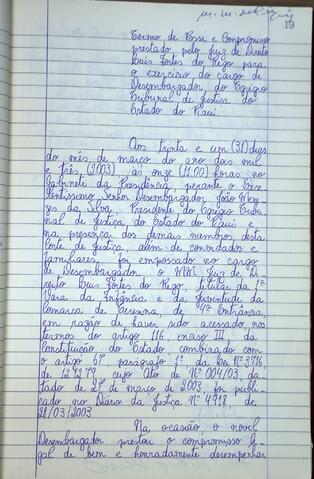 19
Termo de Posse e Compromisso
prestado pelo Juiz de Direito
Luis Fortes do Rego para
o exercício do cargo de
Desembargador do Egrégio
Tribunal de Justiça do
Estado do Piauí
Aos trinta e um (31) dias
do mês de março do ano dois mil
e três, (2003) às onze (11:00) horas, no
Gabinete da Presidência, perante o Exce
lentíssimo Senhor Desembargador João Mene
zes da Silva, Presidente do Egrégio Tribu
nal de Justiça, do Estado do Piauí e
na presença dos demais membros desta
Corte de Justiça, além de convidados e
familiares, foi empossado no cargo
de Desembargador o MM. Juiz de Di
reito Luis Fortes do Rego, titular da 1ª
Vara da Infância e da Juventude da
Comarca de Teresina, de 4ª Entrância,
em razão de haver sido acessado, nos
termos do artigo 116, inciso III, da
Constituição do Estado, combinado com
o artigo 67, parágrafo 1º da Lei Nº 3.716,
de 12.12.79, cujo Ato de Nº 004/03, da
tado de 27 de março de 2003, foi publi
cado no Diário da Justiça Nº 4.918 de
28/03/2003
Na ocasião o novel
Desembargador prestou o compromisso le
gal de bem e honradamente desempenhar